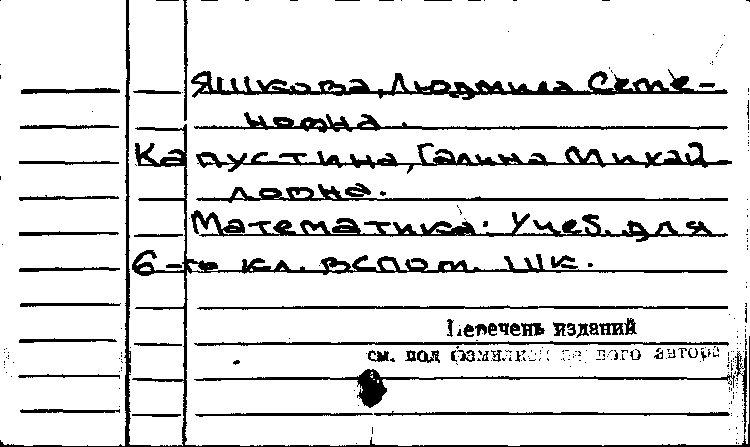 Яшкова, Людмила Семе-
новна.
Капустина, Галина Михай-
ловна.
Математика: Учеб. для
6-го кл. вспом. шк.
Перечень изданий
см. под фамилией первого автора